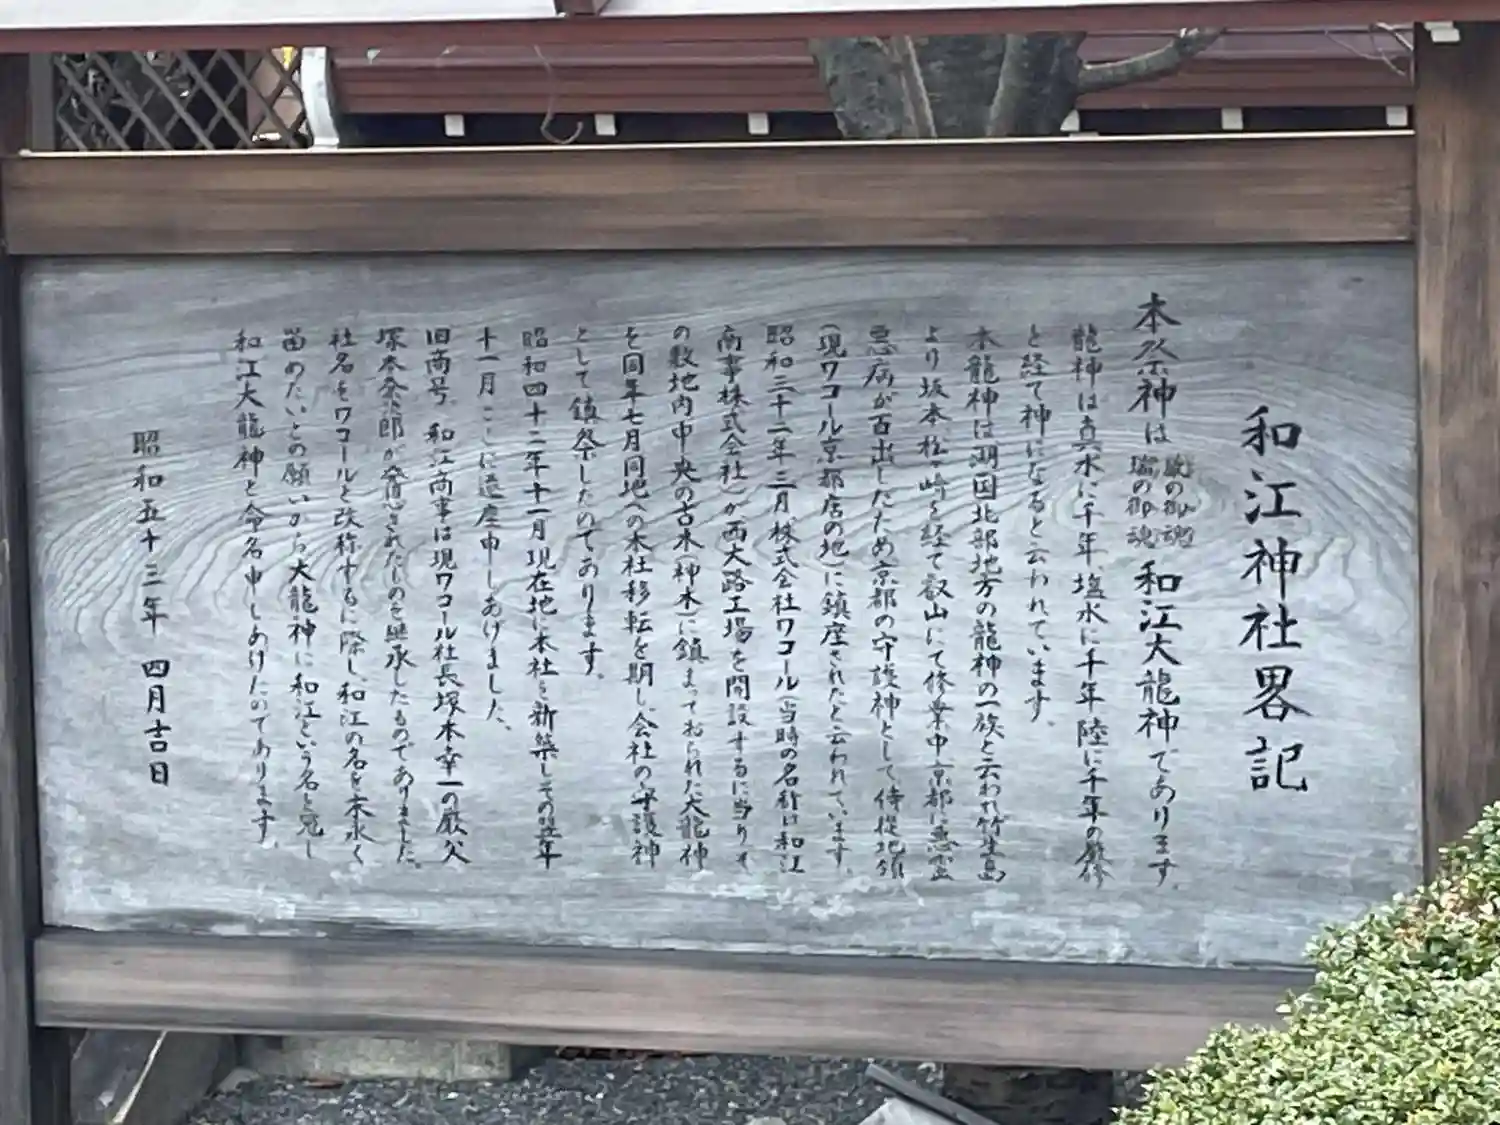 和江神社畧記
本祭神は 厳の御魂 瑞の御魂 和江大龍神であります。
龍神は真水に千年、塩水に千年、陸に千年の厳修
を経て神になると云われています。
本龍神は湖国北部地方の龍神の一族と云われ竹生島
より坂本松ヶ崎を経て叡山にて修業中京都に悪霊
悪病が百出したため京都の守護神として、侍従地領
(現ワコール京都店の地)に鎮座されたと云われています。
昭和三十二年三月、株式会社ワコール(当時の名称は和江
商事株式会社)が西大路工場を開設するに当りそ
の敷地内中央の古木(神木)に鎮まっておられた大龍神
を同年七月同地への本社移転を期し、会社の守護神
として鎮祭したのであります。
昭和四十二年十一月現在地に本社を新築しその翌年
十一月ここに遷座申しあげました、
旧商号、和江商事は現ワコール社長塚本幸一の厳父
塚本粂次郎が発意されたものを継承したものでありました。
社名をワコールと改称するに際し、和江の名を末永く
留めたいとの願いから大龍神に和江という名を冠し
和江大龍神と命名申しあげたのであります。
昭和五十三年 四月吉日